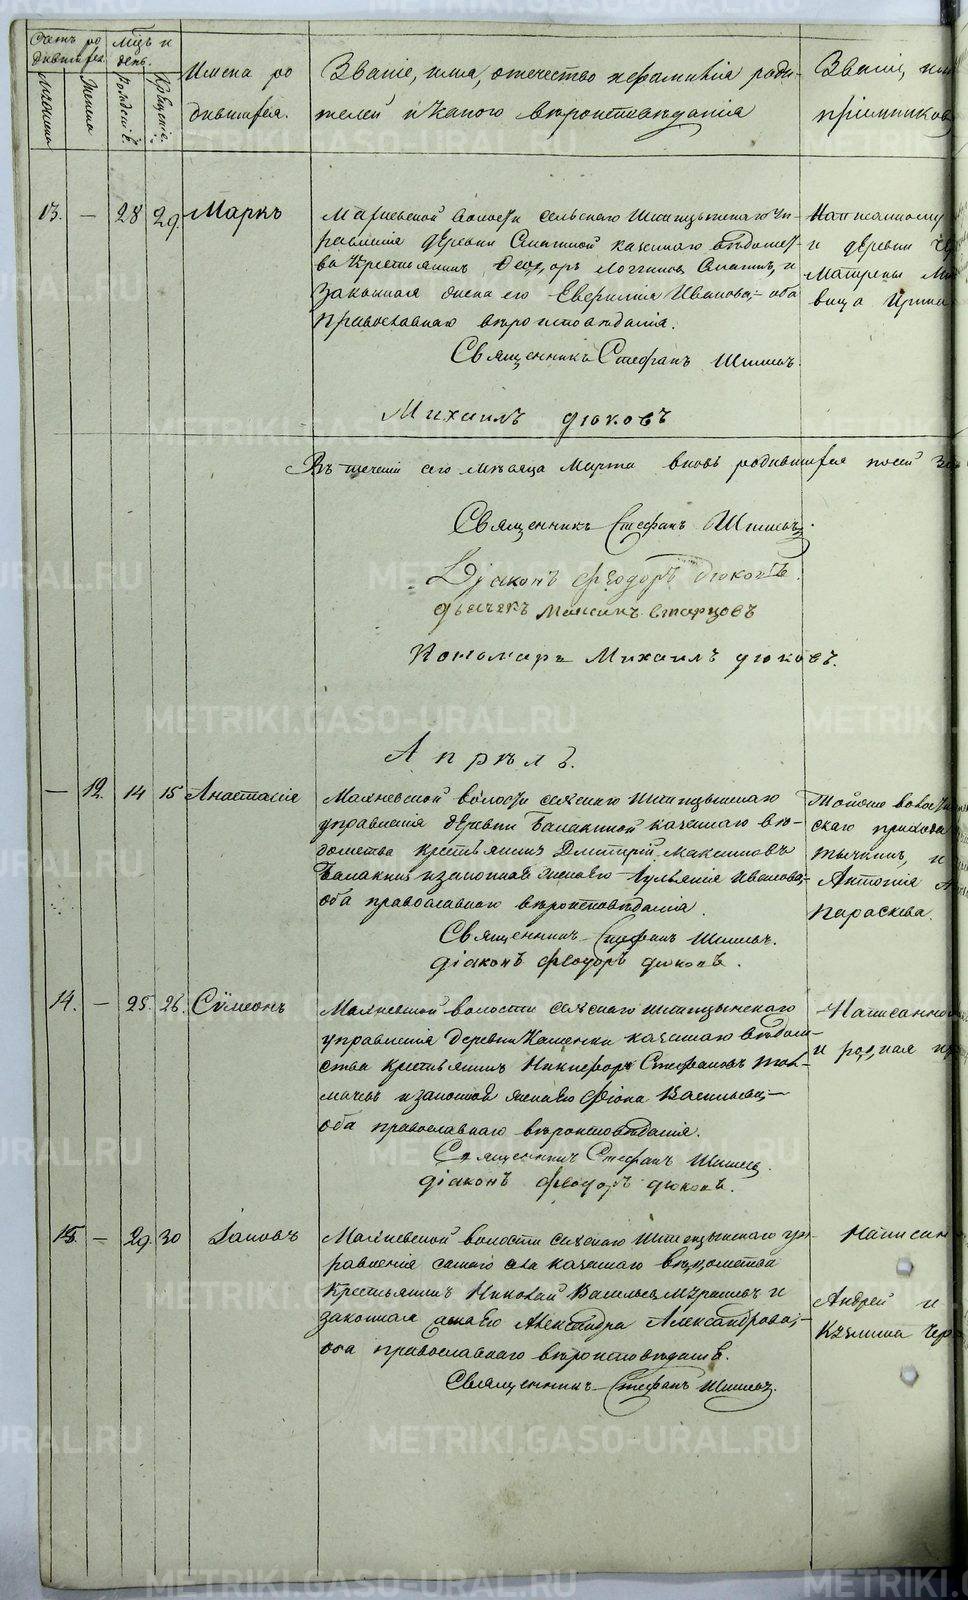 Счетъ ро
дившихся.
Мужеска
Женска
Мѣсяцъ и
день.
Рожденія.
Крещенія.
Имена ро
дившихся.
Званіе, имя, отчество и фамилія роди-
телей и какого вѣроисповѣданія
Званіе,
пріемниковъ
13. — 28 29. Маркъ
Махневской волости сельскаго Шипицынскаго уп-
равленія деревни казеннаго вѣдомст-
ва крестьянинъ Ѳеодоръ Логгиновъ и
законная жена его Евфимія Иванова; оба
православнаго вѣроисповѣданія.
Священникъ Стефанъ
Михаилъ Дюковъ
Написанному
и деревни
Матрены
вица Ирина
Въ теченіи сего мѣсяца Марта вновь родившихся
Священникъ Стефанъ
Діаконъ Феодоръ Дюковъ.
Дьячекъ Максимъ Старцовъ
Пономарь Михаилъ Дюковъ.
Апрѣль.
— 12. 14 15 Анастасія
Махневской волости сельскаго Шипицынскаго
управленія деревни Балакиной казеннаго вѣ-
домства крестьянинъ Дмитрій Максимовъ
Балакинъ и законная жена его Іульянія Иванова;
оба православнаго вѣроисповѣданія.
Священникъ Стефанъ
Діаконъ Феодоръ Дюковъ.
Тойже волости
скаго прихода
и
Антонія
Параскева.
14. — 25. 26. Сѵмеонъ
Махневской волости сельскаго Шипицынскаго
управленія деревни Кашенки казеннаго вѣдом-
ства крестьянинъ Никифоръ Стефановъ Тол-
мачевъ и законной жена его Васильева;—
оба православнаго вѣроисповѣданія.
Священникъ Стефанъ
Діаконъ Феодоръ Дюковъ.
Написанно
и родная
15. — 29. 30 Іаковъ
Махневской волости сельскаго Шипицынскаго уп-
равленія самаго села казеннаго вѣдомства
Крестьянинъ Николай Васильевъ и
законная жена его Александра Александрова;—
оба православнаго вѣроисповѣданія.
Священникъ Стефанъ
Написан
Андрей и
METRIKI.GASO-URAL.RU